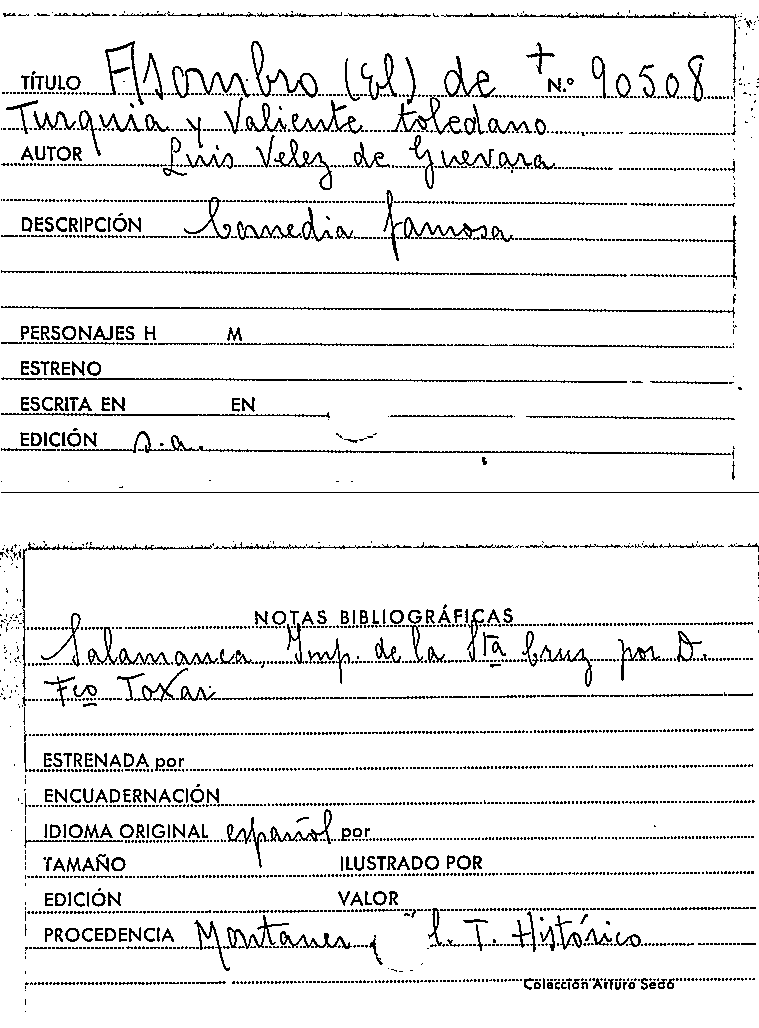 TÍTULO Asombro (El) de + N.º 90508
Turquia y Valiente toledano
AUTOR Luis Velez de Guevara
DESCRIPCIÓN Comedia famosa
PERSONAJES H M
ESTRENO
ESCRITA EN EN
EDICIÓN s.a.
NOTAS BIBLIOGRÁFICAS
Salamanca, Imp. de la Sta Cruz por D.
Fco Toxar
ESTRENADA por
ENCUADERNACIÓN
IDIOMA ORIGINAL español por
TAMAÑO ILUSTRADO POR
EDICIÓN VALOR
PROCEDENCIA Montaner, C. T. Histórico
Colección Arturo Sedó